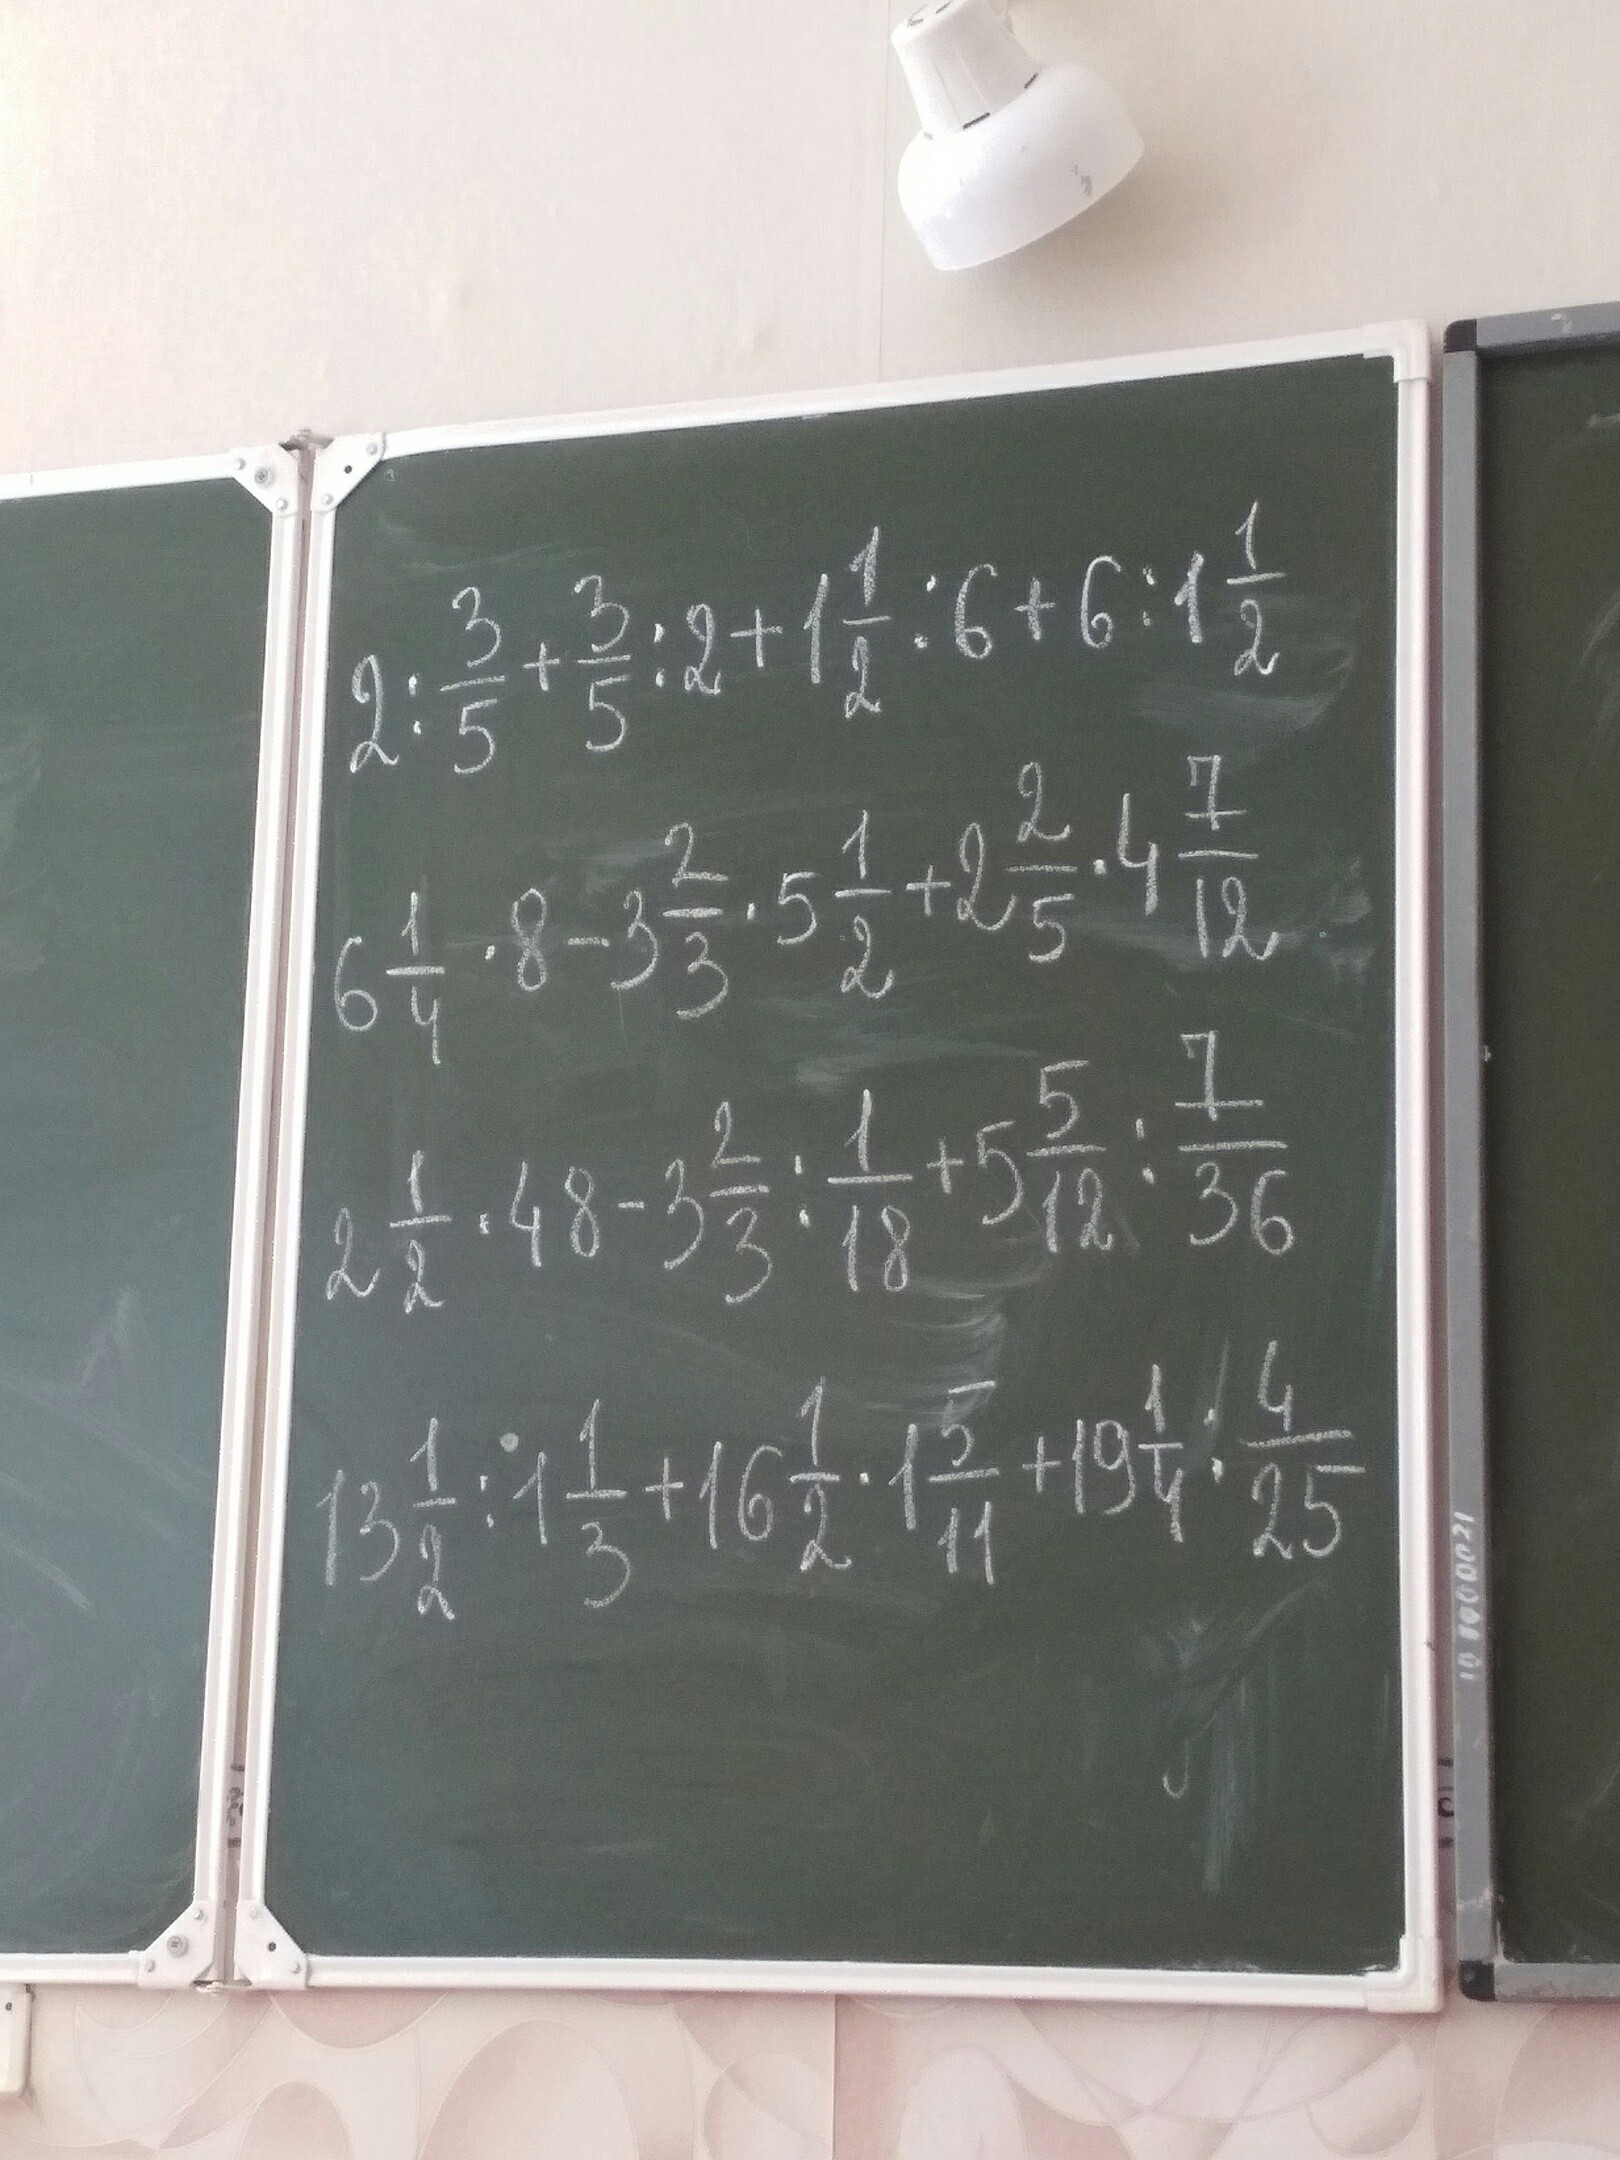 2 : 3/5 + 3/5 : 2 + 1 1/2 : 6 + 6 : 1 1/2
6 1/4 · 8 - 3 2/3 · 5 1/2 + 2 2/5 · 4 7/12
2 1/2 · 48 - 3 2/3 : 1/18 + 5 5/12 : 7/36
13 1/2 : 1 1/3 + 16 1/2 · 1 5/11 + 19 1/4 : 4/25